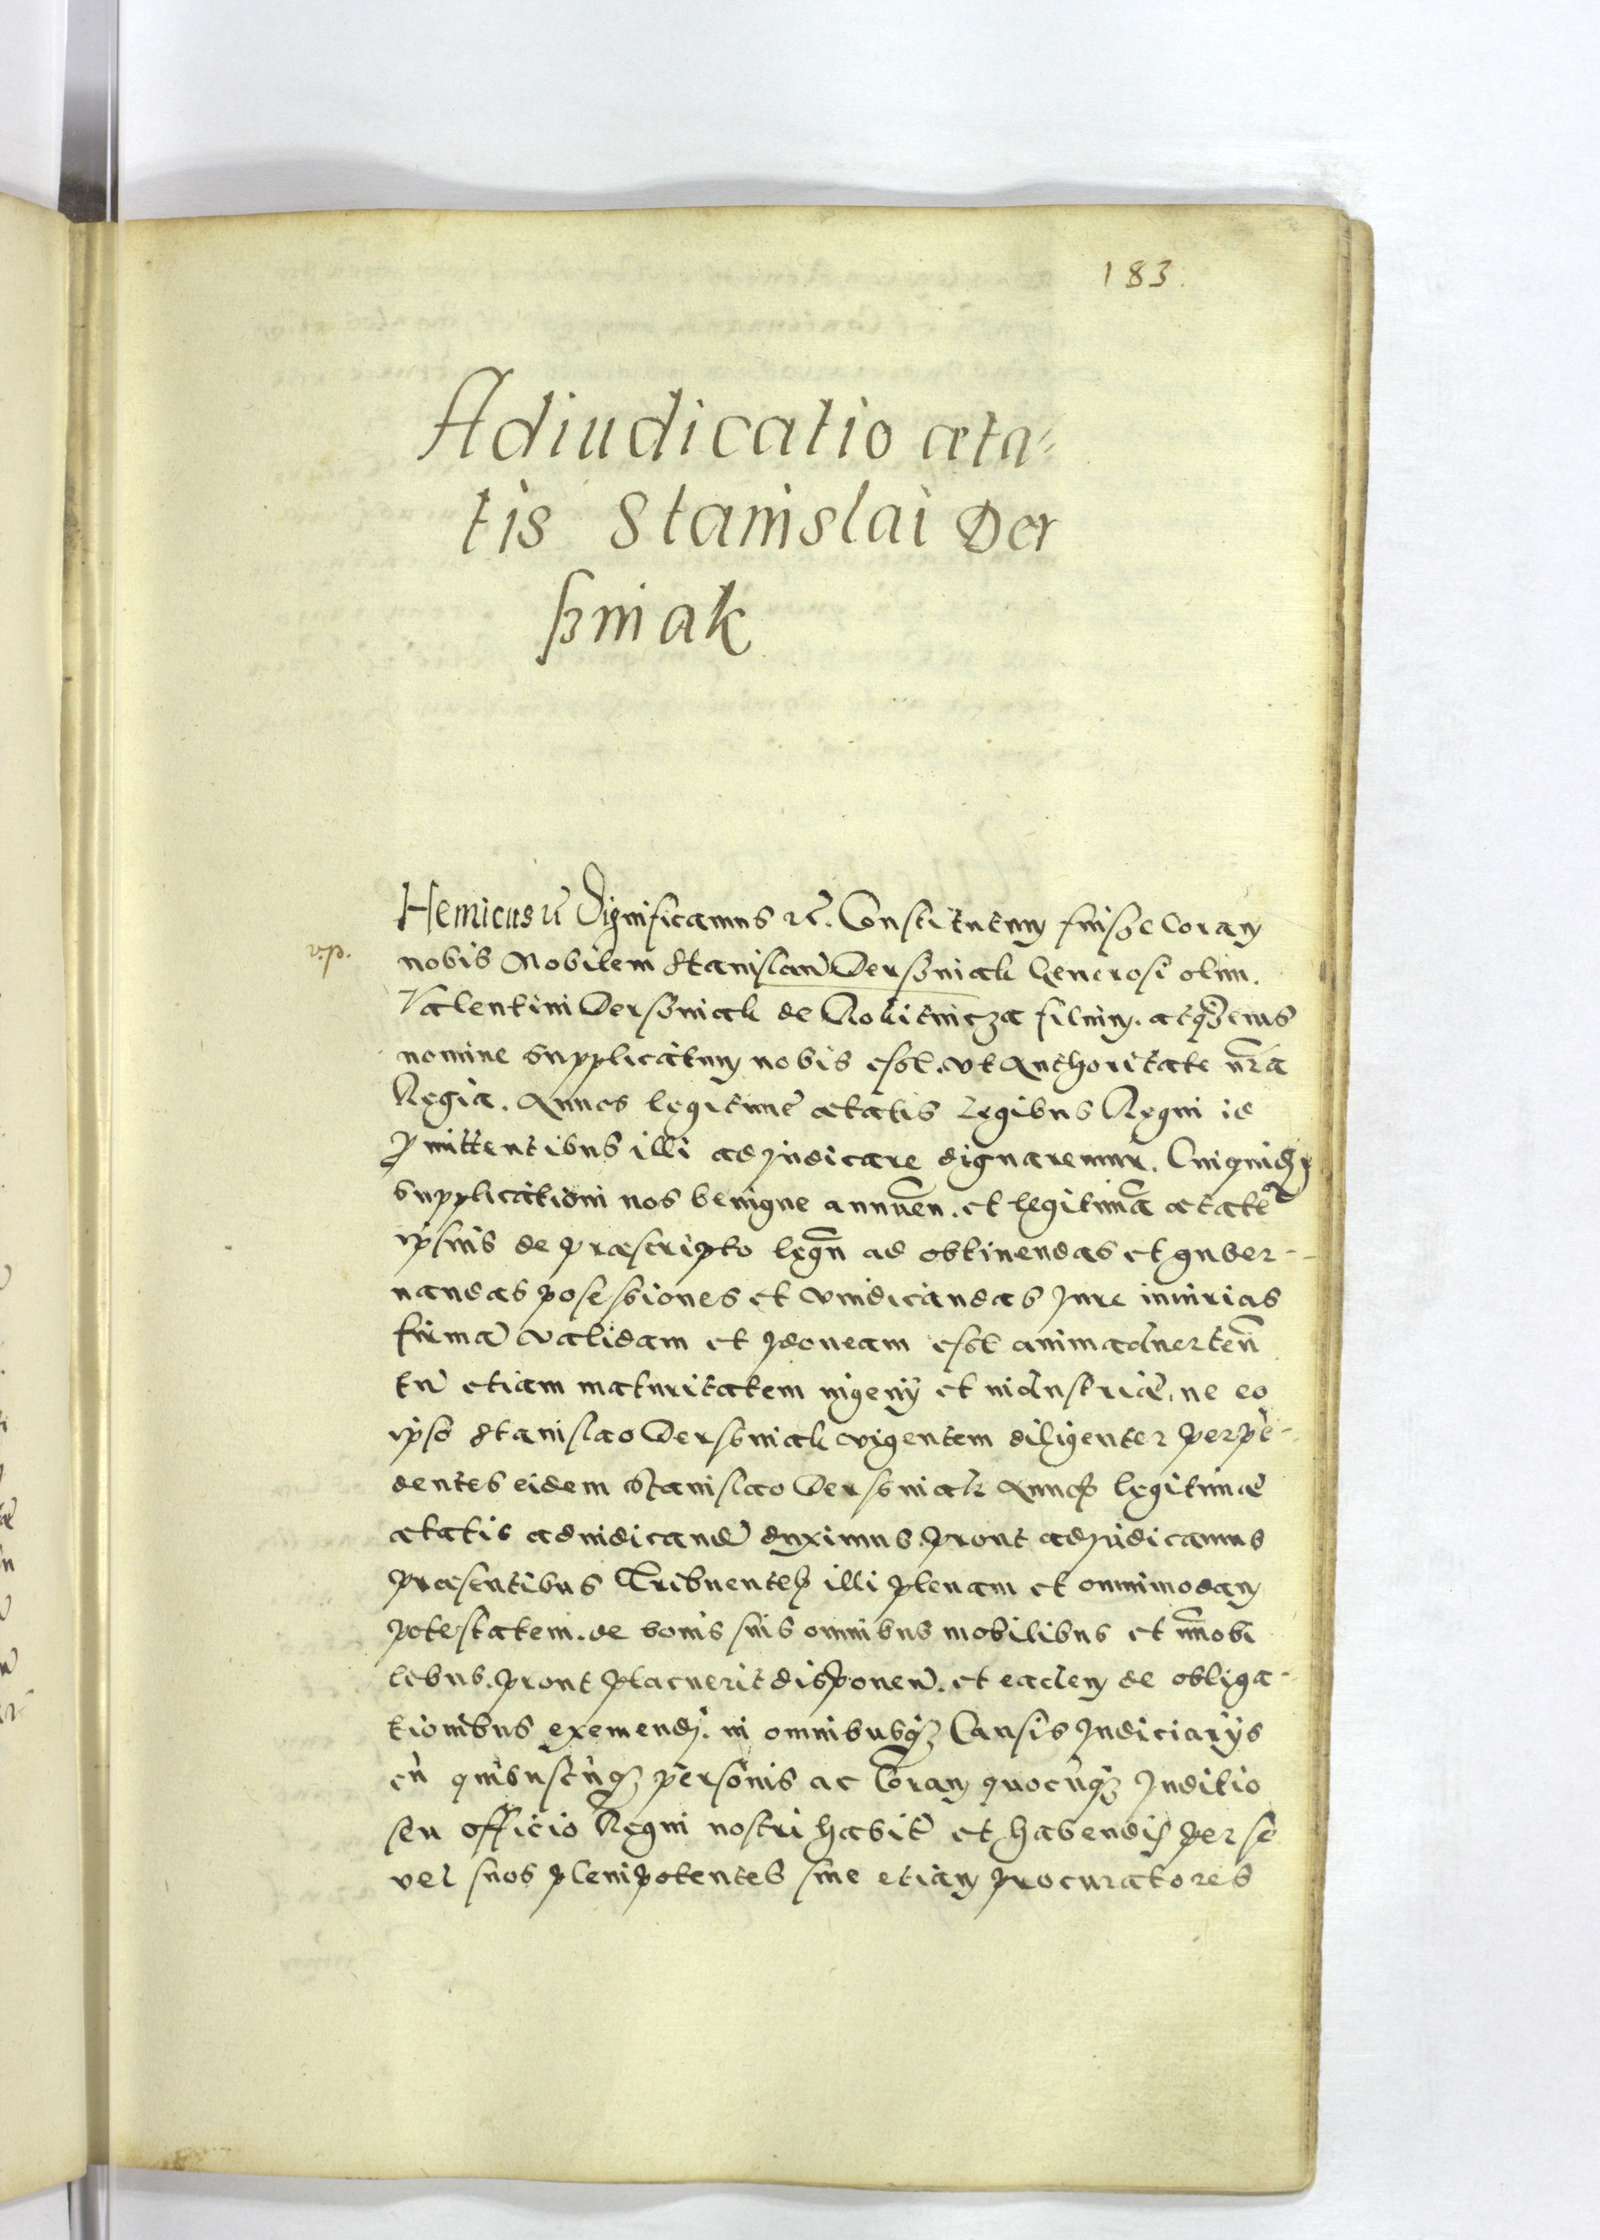 183.
Adiudicatio æta-
tis Stanislai Der
ßniak
Henricus etc. Significamus etc. Constitutum fuisse coram
v.p.
nobis Nobilem Stanislaũ Derßniak Generosi olim.
Valentini Derßniak de Rokitnicza filium. atq3 eius
nomine supplicatum nobis esse. ut Authoritate nr̃a
Regia. Annos legitimę ætatis Legibus Regni id
pmittentibus illi adjudicare dignaremur. Cuiquidem
supplicationi nos benigne annuen̄. et legitimã ætatẽ
ipsius de præscripto legũ ad obtinendas et guber-
nandas posessiones et vindicandas jure iniurias
firmã validam et jdoneam esse animaduerten̄
tũ etiam maturitatem ingenÿ et industriæ. ne eo
ipso Stanislao Derßniak vigentem diligenter perpẽ-
dentes eidem Stanislao Derßniak Annos legitimæ
ætatis adiudicandũ duximus. prout adjudicamus
præsentibus Tribuentes illi plenam et omnimodam
potestatem. de bonis suis omnibus mobilibus et immobi
lebus. prout placuerit disponen̄. et eadem de obliga-
tionibus exemendj. in omnibusq3 Causis Judiciarÿs
cũ quibuscũq3 personis ac Coram quocũq3 Juditio
seu officio Regni nostri habitis et habendis per se
vel suos plenipotentes siue etiam procuratores